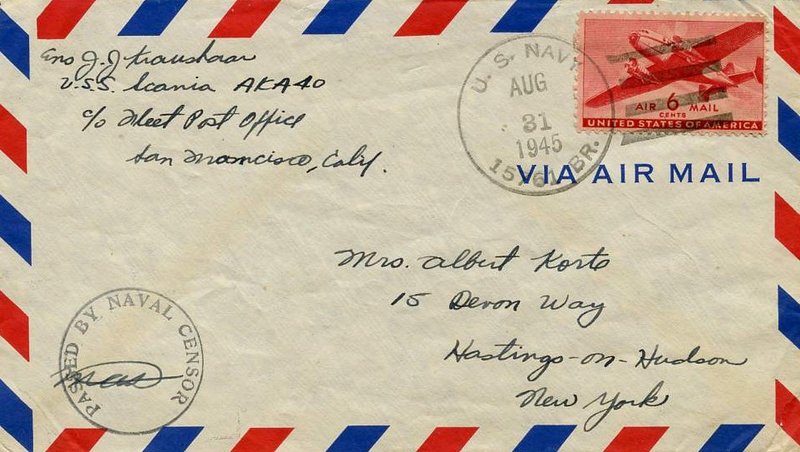 Ens J. J. Straushaar
U.S.S. Scania AKA40
c/o Fleet Post Office
San Francisco, Calif.
U. S. NAVY
AUG
31
1945
15761 BR.
AIR 6 MAIL
CENTS
UNITED STATES OF AMERICA
VIA AIR MAIL
Mrs. Albert Korte
15 Devon Way
Hastings-on-Hudson
New York
PASSED BY NAVAL CENSOR